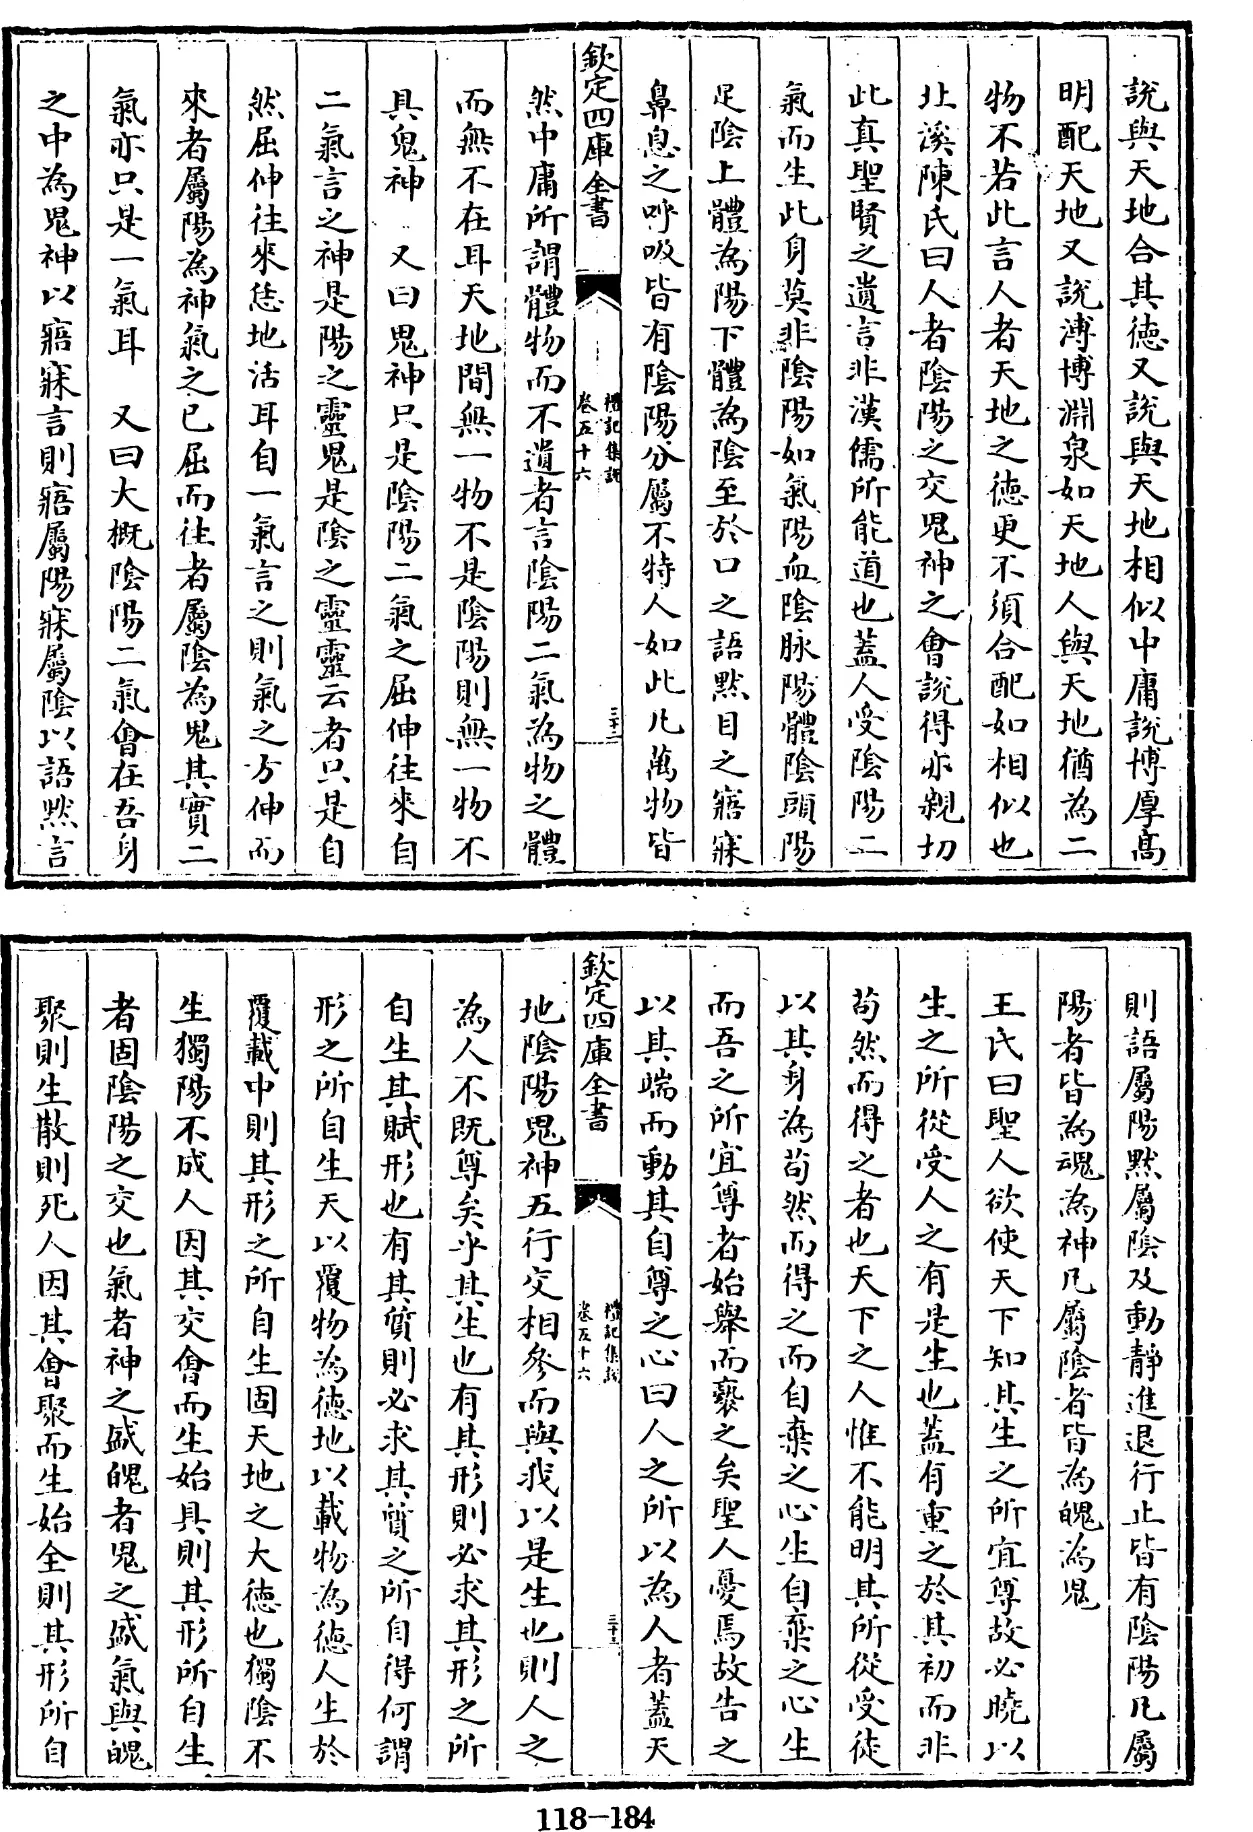 說與天地合其德又說與天地相似中庸說博厚髙
明配天地又說溥博淵泉如天地人與天地猶為二
物不若此言人者天地之德更不須合配如相似也
北溪陳氏曰人者隂陽之交鬼神之㑹說得亦親切
此真聖賢之遺言非漢儒所能道也葢人受隂陽二
氣而生此身莫非隂陽如氣陽血隂脉陽體隂頭陽
足隂上體為陽下體為隂至於口之語黙目之寤寐
鼻息之呼吸皆有隂陽分屬不特人如此凡萬物皆
欽定四庫全書
禮記集說
卷五十六
三十二
然中庸所謂體物而不遺者言隂陽二氣為物之體
而無不在耳天地間無一物不是隂陽則無一物不
具鬼神 又曰鬼神只是隂陽二氣之屈伸往來自
二氣言之神是陽之靈鬼是隂之靈靈云者只是自
然屈伸往來恁地活耳自一氣言之則氣之方伸而
來者屬陽為神氣之已屈而往者屬隂為鬼其實二
氣亦只是一氣耳 又曰大概隂陽二氣㑹在吾身
之中為鬼神以寤寐言則寤屬陽寐屬隂以語黙言
則語屬陽黙屬隂及動靜進退行止皆有隂陽凡屬
陽者皆為魂為神凡屬隂者皆為魄為鬼
王氏曰聖人欲使天下知其生之所宜尊故必曉以
生之所從受人之有是生也葢有重之於其初而非
茍然而得之者也天下之人惟不能明其所從受徒
以其身為茍然而得之而自棄之心生自棄之心生
而吾之所宜尊者始舉而褻之矣聖人憂焉故告之
以其端而動其自尊之心曰人之所以為人者葢天
欽定四庫全書
禮記集說
卷五十六
三十三
地隂陽鬼神五行交相參而與我以是生也則人之
為人不既尊矣乎其生也有其形則必求其形之所
自生其賦形也有其質則必求其質之所自得何謂
形之所自生天以覆物為德地以載物為德人生於
覆載中則其形之所自生固天地之大德也獨隂不
生獨陽不成人因其交㑹而生始具則其形所自生
者固隂陽之交也氣者神之盛魄者鬼之盛氣與魄
聚則生散則死人因其㑹聚而生始全則其形所自
118-184